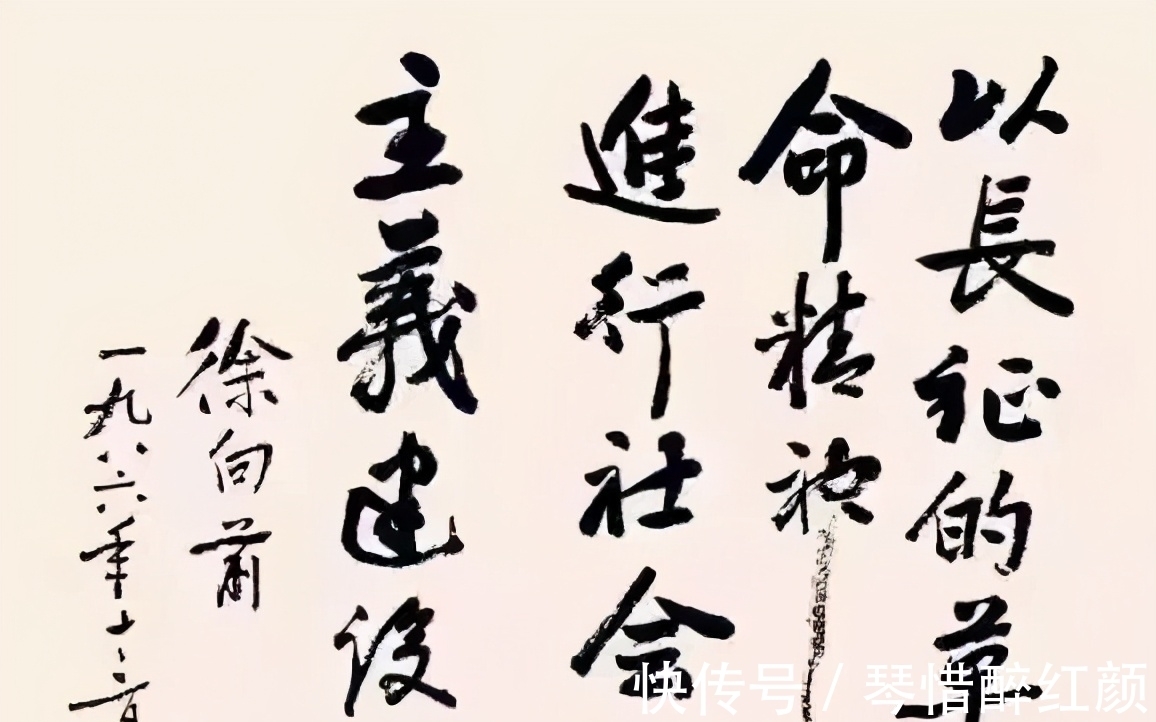 以長征的革
命精神
進行社会
主義建设
徐向前
一九八六年十
快传号 / 琴惜醉红颜